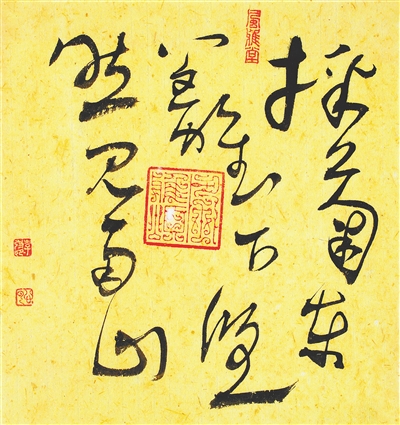 採菊東
籬下悠
然見南山